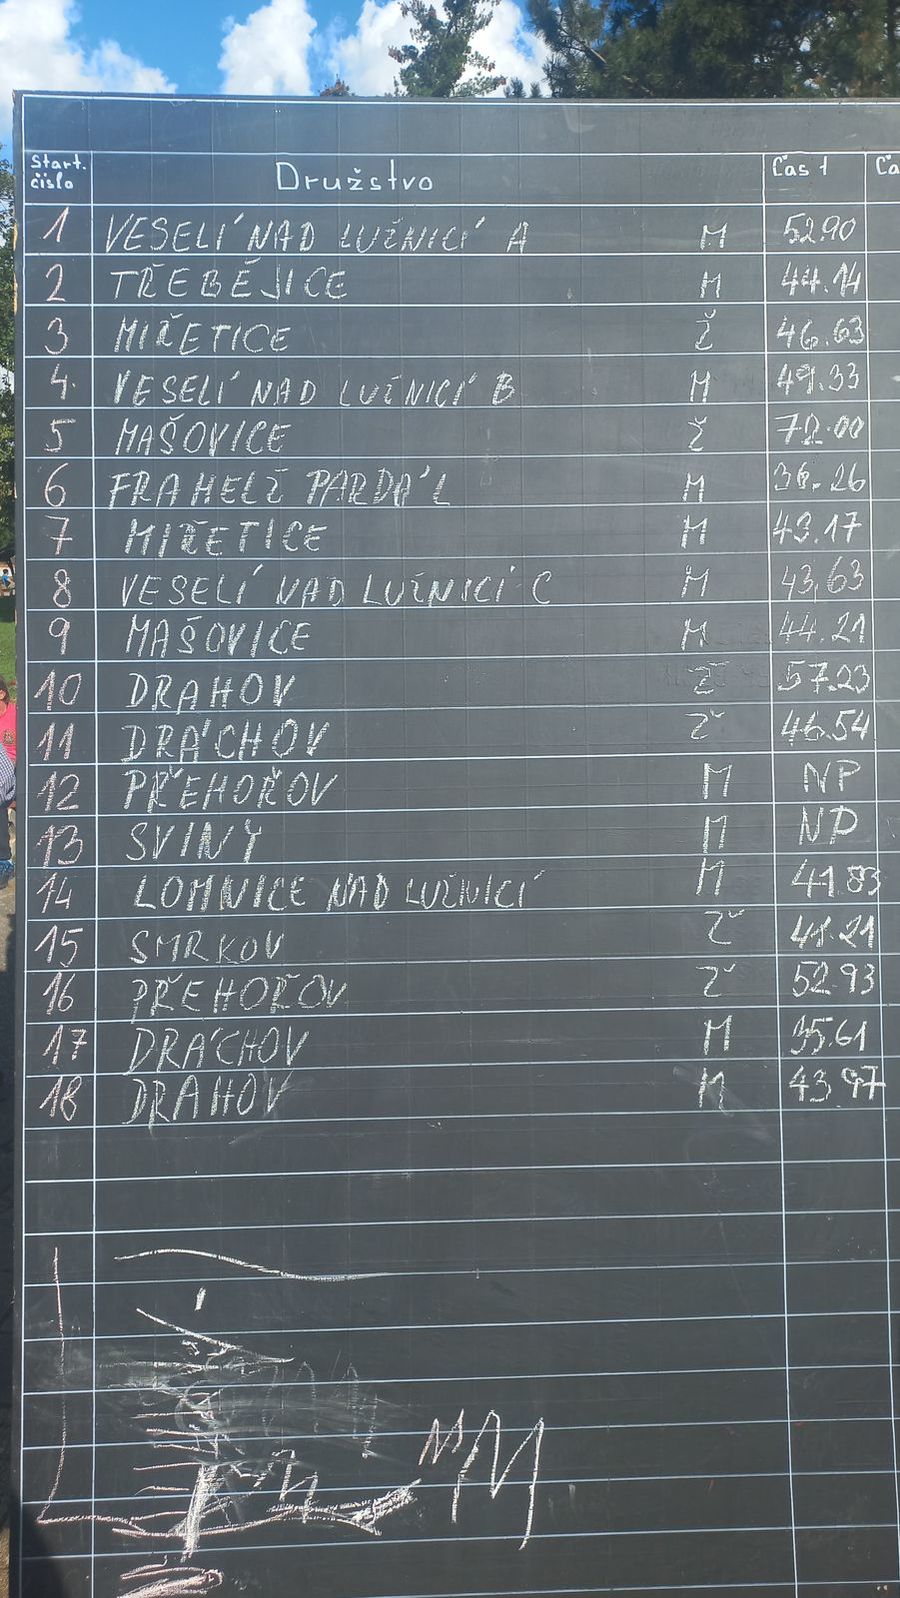 Start. číslo Družstvo Čas 1 Ča
1 VESELÍ NAD LUŽNICÍ A M 52.90
2 TŘEBĚJICE M 44.14
3 MIŘETICE Ž 46.63
4. VESELÍ NAD LUŽNICÍ B M 49.33
5 MAŠOVICE Ž 72.00
6 FRAHELŽ PARDÁL M 36.26
7 MIŘETICE M 43.17
8 VESELÍ NAD LUŽNICÍ C M 43,63
9 MAŠOVICE M 44.21
10 DRAHOV Ž 57.23
11 DRÁCHOV Ž 46.54
12 PŘEHOŘOV M NP
13 SVINY M NP
14 LOMNICE NAD LUŽNICÍ M 41.83
15 SMRKOV Ž
16 PŘEHOŘOV Ž 52.93
17 DRÁCHOV M 35.61
18 DRAHOV M 43 97
M M